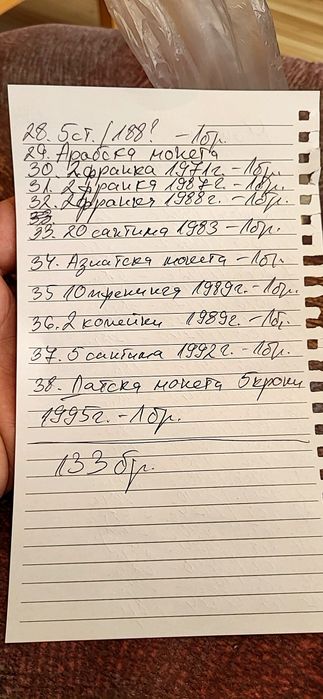 28. 5ст. /188? - 1бр.
29. Арабска монета
30. 2 франка 1971г. - 1бр.
31. 2 франка 1987г. - 1бр.
32. 2 франка 1988г. - 1бр.
33. 20 сантима 1983 - 1бр.
34. Азиатска монета - 1бр.
35 10 пфенинга 1989г. - 1бр.
36. 2 копейки 1989г. - 1бр.
37. 5 сантима 1992г. - 1бр.
38. Датска монета 5 крони
1995г. - 1бр.
133 бр.